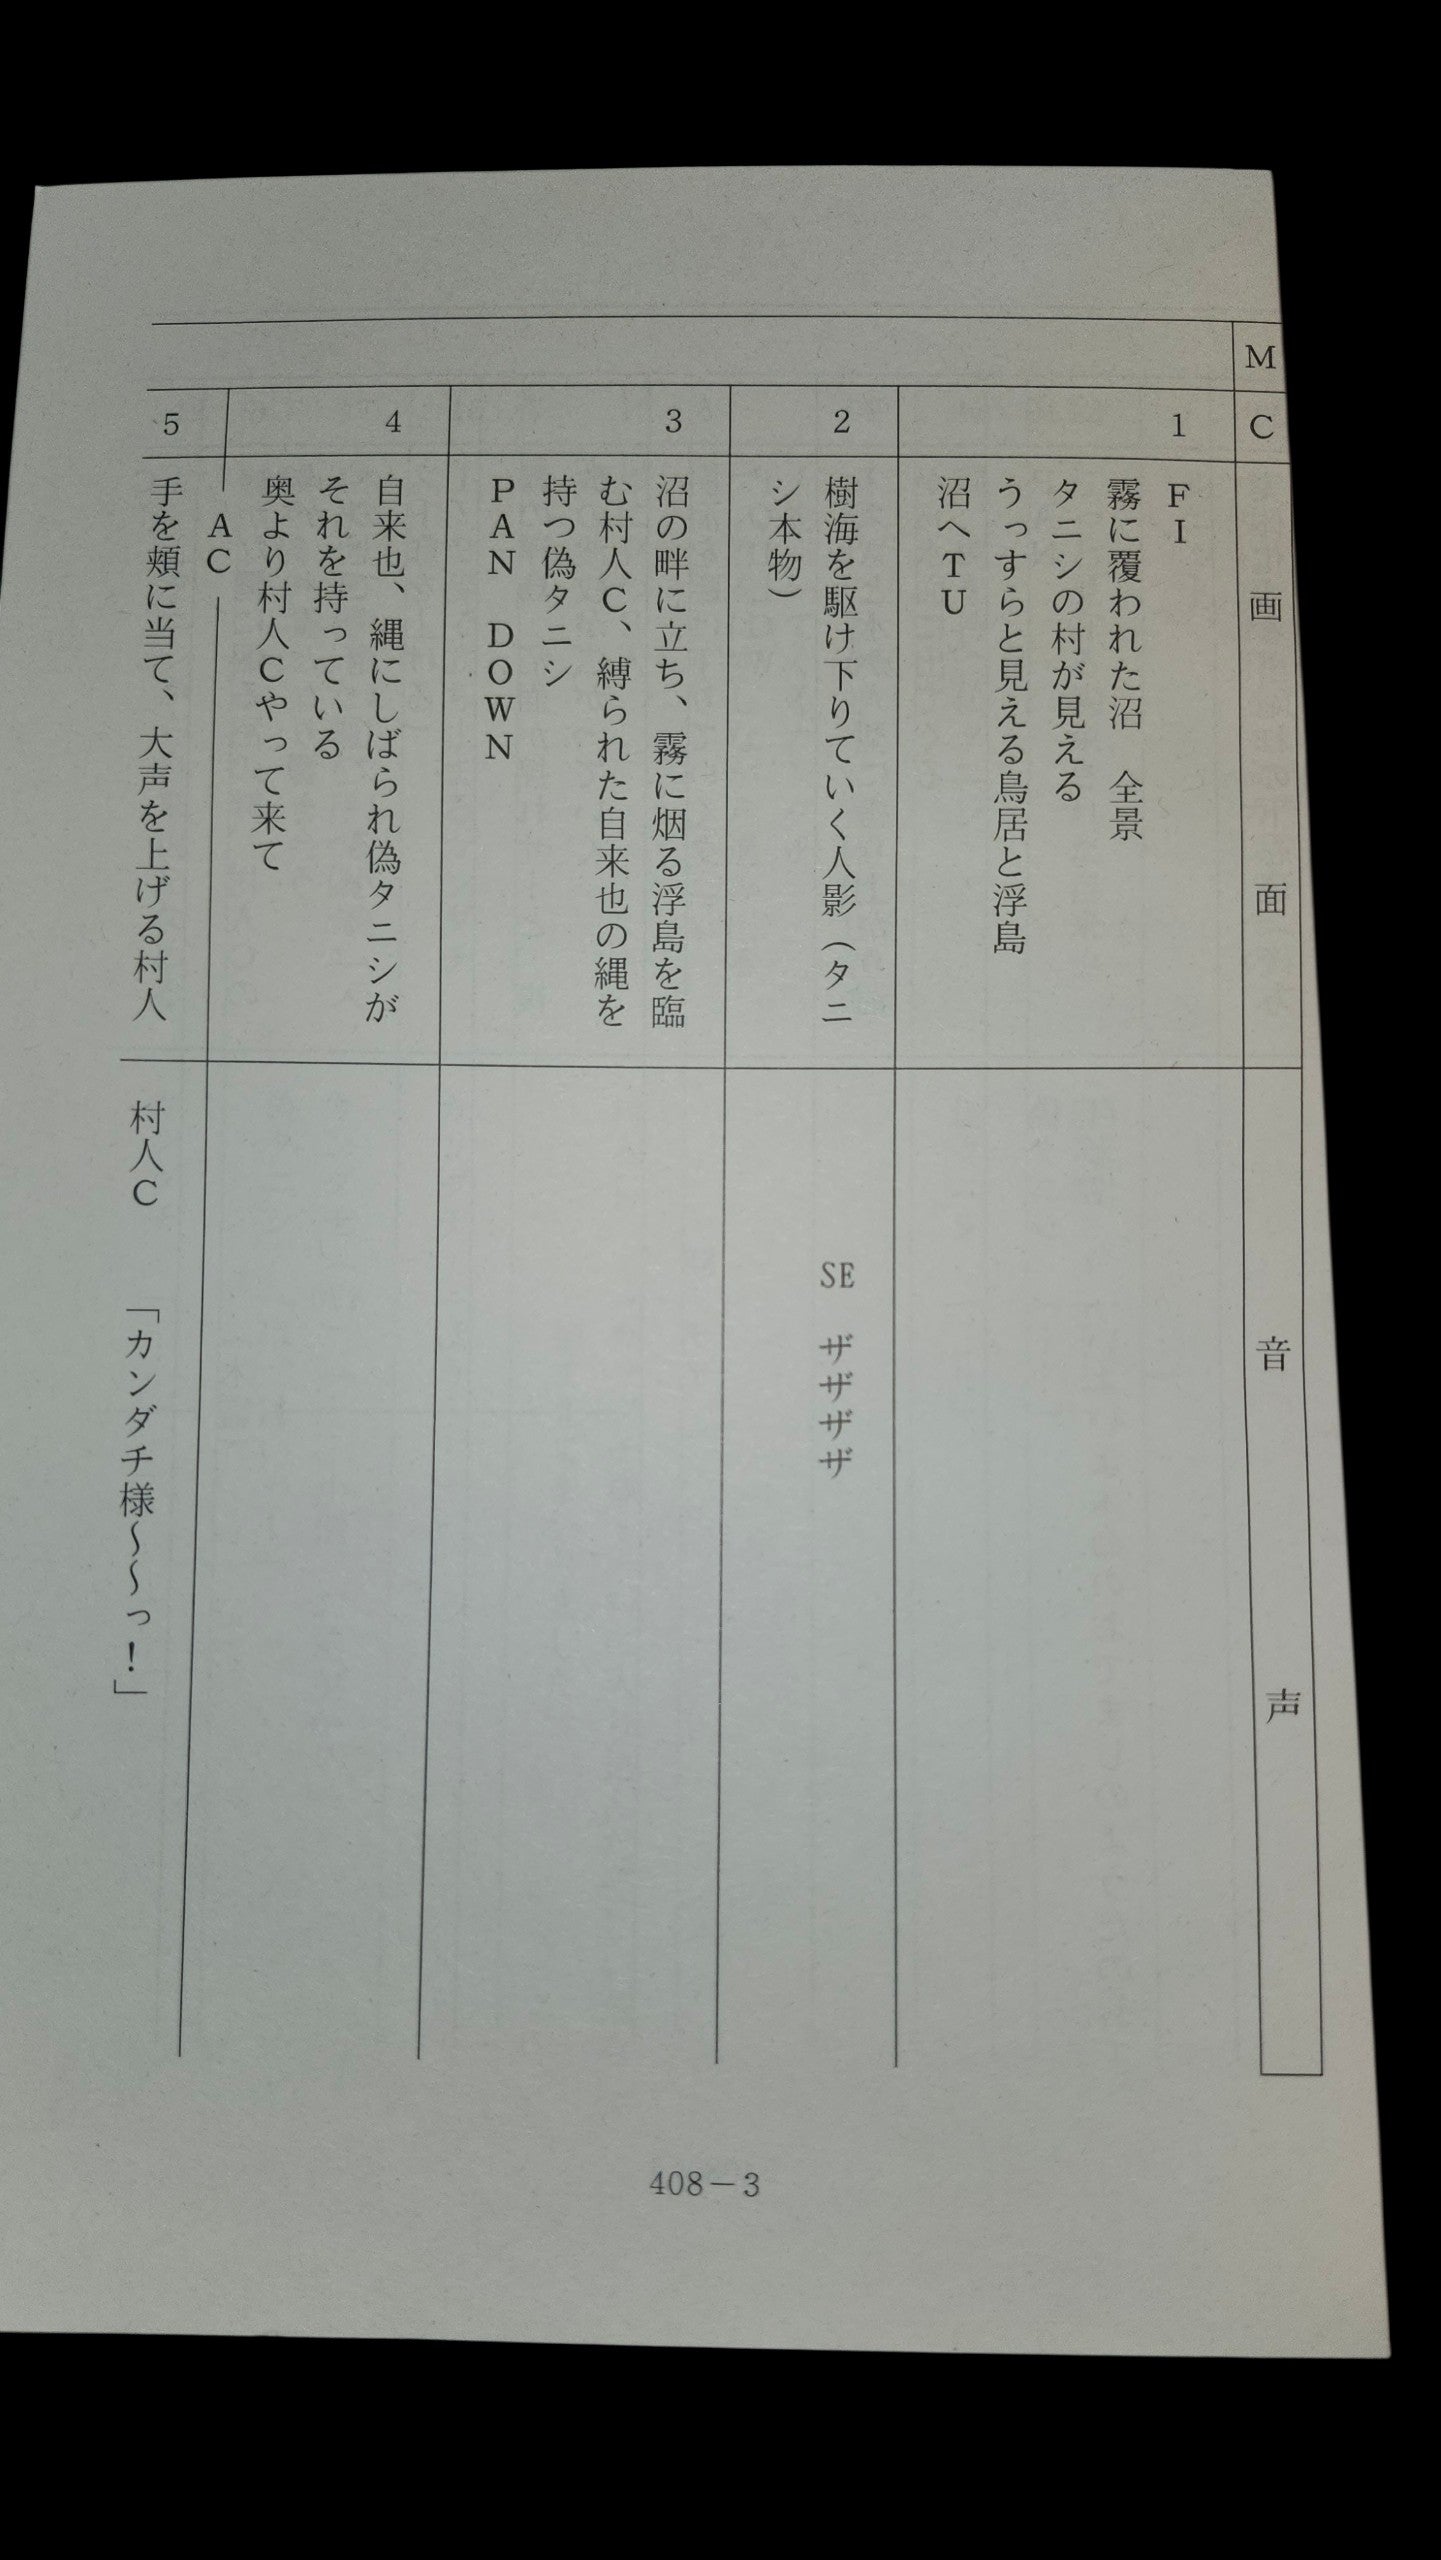 M C 画面 音声
1
FI
霧に覆われた沼　全景
タニシの村が見える
うっすらと見える鳥居と浮島
沼へTU
2
樹海を駆け下りていく人影（タニ
シ本物）
SE　ザザザザ
3
沼の畔に立ち、霧に烟る浮島を臨
む村人C、縛られた自来也の縄を
持つ偽タニシ
PAN DOWN
4
自来也、縄にしばられ偽タニシが
それを持っている
奥より村人Cやって来て
AC
5
手を頬に当て、大声を上げる村人
村人C　「カンダチ様～～っ！」
408－3